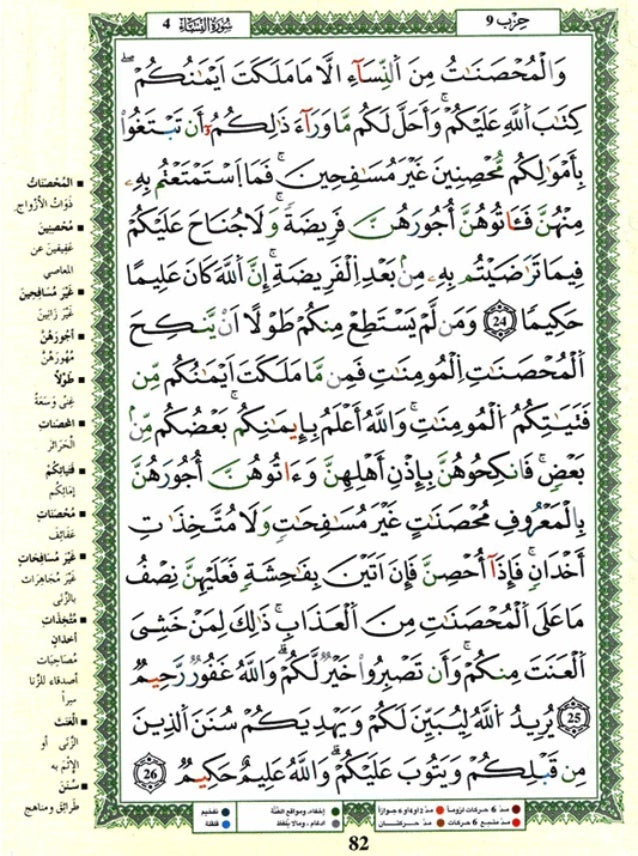 حِزْب 9
سُورَةُ النِّسَاءِ 4
وَالْمُحْصَنَٰتُ مِنَ اَلنِّسَآءِ الَّا مَا مَلَكَتَ اَيْمَٰنُكُمْۖ
كِتَٰبَ اَللَّهِ عَلَيْكُمْۚ وَأَحَلَّ لَكُم مَّا وَرَآءَ ذَٰلِكُمُۥٓ أَن تَبْتَغُواْ
بِأَمْوَٰلِكُم مُّحْصِنِينَ غَيْرَ مُسَٰفِحِينَۚ فَمَا اَسْتَمْتَعْتُم بِهِۦ
مِنْهُنَّ فَـَٔاتُوهُنَّ أُجُورَهُنَّ فَرِيضَةٗۚ وَلَا جُنَاحَ عَلَيْكُمْ
فِيمَا تَرَٰضَيْتُم بِهِۦ مِنۢ بَعْدِ اِلْفَرِيضَةِۚ إِنَّ اَللَّهَ كَانَ عَلِيمًا
حَكِيمًا 24 وَمَن لَّمْ يَسْتَطِعْ مِنكُمْ طَوْلًا اَنْ يَّنكِحَ
اَلْمُحْصَنَٰتِ اِلْمُومِنَٰتِ فَمِن مَّا مَلَكَتَ اَيْمَٰنُكُم مِّن
فَتَيَٰتِكُمُ اُلْمُومِنَٰتِۚ وَاللَّهُ أَعْلَمُ بِإِيمَٰنِكُمۚ بَعْضُكُم مِّنۢ
بَعْضٖۚ فَانكِحُوهُنَّ بِإِذْنِ أَهْلِهِنَّ وَءَاتُوهُنَّ أُجُورَهُنَّ
بِالْمَعْرُوفِ مُحْصَنَٰتٍ غَيْرَ مُسَٰفِحَٰتٖ وَلَا مُتَّخِذَٰتِ
أَخْدَانٖۚ فَإِذَآ أُحْصِنَّ فَإِنَ اَتَيْنَ بِفَٰحِشَةٖ فَعَلَيْهِنَّ نِصْفُ
مَا عَلَى اَلْمُحْصَنَٰتِ مِنَ اَلْعَذَابِۚ ذَٰلِكَ لِمَنْ خَشِيَ
اَلْعَنَتَ مِنكُمْۚ وَأَن تَصْبِرُواْ خَيْرٞ لَّكُمْۗ وَاللَّهُ غَفُورٞ رَّحِيمٞ
25 يُرِيدُ اُللَّهُ لِيُبَيِّنَ لَكُمْ وَيَهْدِيَكُمْ سُنَنَ اَلذِينَ
مِن قَبْلِكُمْ وَيَتُوبَ عَلَيْكُمْۗ وَاللَّهُ عَلِيمٌ حَكِيمٞ 26
■ المُحْصَنَاتُ
ذَوَاتُ الأَزْوَاجِ
■ مُحْصِنِينَ
عَفِيفِينَ عن
المعاصي
■ غَيْرَ مُسَافِحِينَ
غَيْرَ زَانِينَ
■ أجُورَهُنَّ
مُهُورَهُنَّ
■ طَوْلًا
غِنًى وَسَعَةً
■ المحصَنَاتِ
الحَرَائِرَ
■ فَتَيَاتِكُم
إمَائِكُم
■ مُحْصَنَاتٍ
عَفَائِفَ
■ غَيْرَ مُسَافِحَاتٍ
غَيْرَ مُجَاهِرَاتٍ
بِالزِّنَى
■ مُتَّخِذَاتِ
أخْدَانٍ
مُصَاحِبَاتِ
أصدقاء للزِّنا
سِرّاً
■ العَنَتَ
الزِّنَى أو
الإثْمَ به
■ سُنَنَ
طَرَائِقَ ومناهج
مدّ 6 حركات لزوماً
مدّ 2 او 4 او 6 جوازاً
إخفاء، ومواقع الغُنَّة
تفخيم
مدّ مشبع 6 حركات
مدّ حركتان
ادغام ، ومالا يُلفظ
قلقلة
82